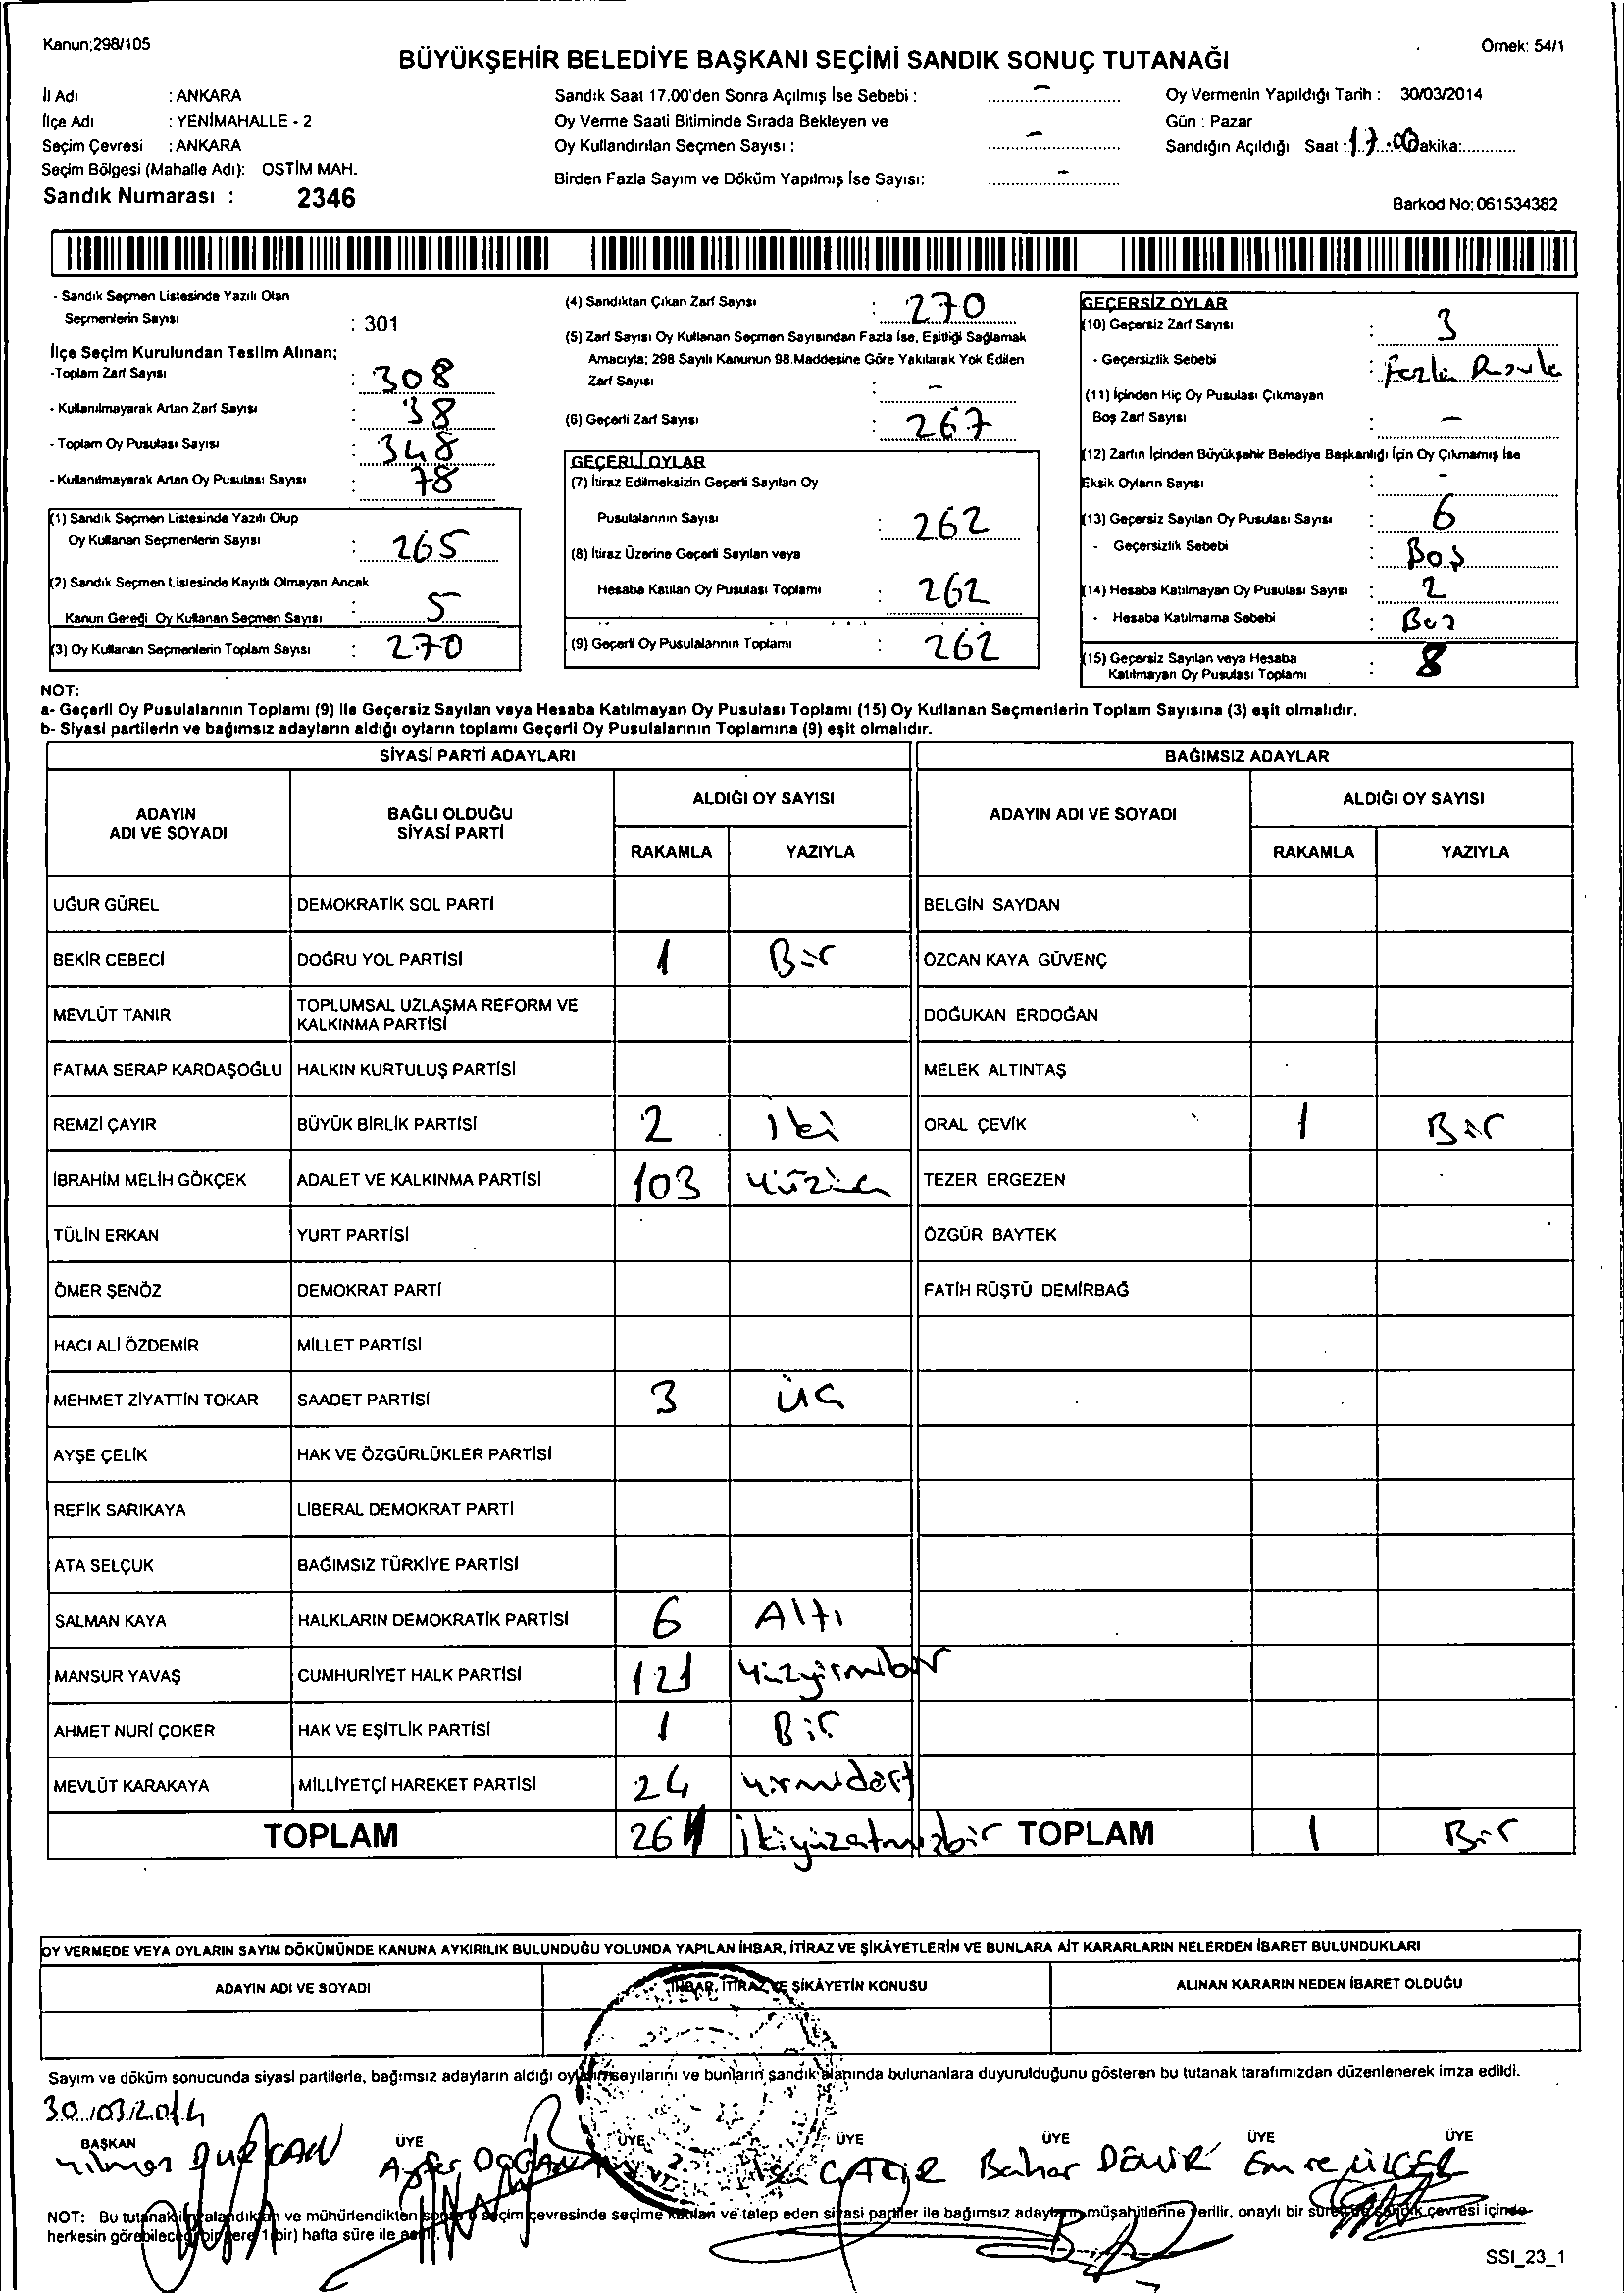 Kanun;298/105
Örnek: 54/1
BÜYÜKŞEHİR BELEDİYE BAŞKANI SEÇİMİ SANDIK SONUÇ TUTANAĞI
İl Adı : ANKARA
İlçe Adı : YENİMAHALLE - 2
Seçim Çevresi : ANKARA
Seçim Bölgesi (Mahalle Adı): OSTİM MAH.
Sandık Numarası : 2346
Sandık Saat 17.00'den Sonra Açılmış İse Sebebi : -
Oy Verme Saati Bitiminde Sırada Bekleyen ve
Oy Kullandırılan Seçmen Sayısı : -
Birden Fazla Sayım ve Döküm Yapılmış İse Sayısı: -
Oy Vermenin Yapıldığı Tarih : 30/03/2014
Gün : Pazar
Sandığın Açıldığı Saat : 17.00 Dakika:
Barkod No: 061534382
- Sandık Seçmen Listesinde Yazılı Olan
Seçmenlerin Sayısı : 301
İlçe Seçim Kurulundan Teslim Alınan;
-Toplam Zarf Sayısı : 308
- Kullanılmayarak Artan Zarf Sayısı : 38
- Toplam Oy Pusulası Sayısı : 348
- Kullanılmayarak Artan Oy Pusulası Sayısı : 78
(1) Sandık Seçmen Listesinde Yazılı Olup
Oy Kullanan Seçmenlerin Sayısı : 265
(2) Sandık Seçmen Listesinde Kayıtlı Olmayan Ancak
Kanun Gereği Oy Kullanan Seçmen Sayısı : 5
(3) Oy Kullanan Seçmenlerin Toplam Sayısı : 270
(4) Sandıktan Çıkan Zarf Sayısı : 270
(5) Zarf Sayısı Oy Kullanan Seçmen Sayısından Fazla İse, Eşitliği Sağlamak
Amacıyla; 298 Sayılı Kanunun 98.Maddesine Göre Yakılarak Yok Edilen
Zarf Sayısı : -
(6) Geçerli Zarf Sayısı : 267
GEÇERLİ OYLAR
(7) İtiraz Edilmeksizin Geçerli Sayılan Oy
Pusulalarının Sayısı : 262
(8) İtiraz Üzerine Geçerli Sayılan veya
Hesaba Katılan Oy Pusulası Toplamı : 262
(9) Geçerli Oy Pusulalarının Toplamı : 262
GEÇERSİZ OYLAR
(10) Geçersiz Zarf Sayısı : 3
- Geçersizlik Sebebi : Fazla
(11) İçinden Hiç Oy Pusulası Çıkmayan
Boş Zarf Sayısı : -
(12) Zarfın İçinden Büyükşehir Belediye Başkanlığı İçin Oy Çıkmamış İse
Eksik Oyların Sayısı : -
(13) Geçersiz Sayılan Oy Pusulası Sayısı : 6
- Geçersizlik Sebebi : Boş
(14) Hesaba Katılmayan Oy Pusulası Sayısı : 2
- Hesaba Katılmama Sebebi :
(15) Geçersiz Sayılan veya Hesaba
Katılmayan Oy Pusulası Toplamı : 8
NOT:
a- Geçerli Oy Pusulalarının Toplamı (9) İle Geçersiz Sayılan veya Hesaba Katılmayan Oy Pusulası Toplamı (15) Oy Kullanan Seçmenlerin Toplam Sayısına (3) eşit olmalıdır.
b- Siyasi partilerin ve bağımsız adayların aldığı oyların toplamı Geçerli Oy Pusulalarının Toplamına (9) eşit olmalıdır.
SİYASİ PARTİ ADAYLARI
BAĞIMSIZ ADAYLAR
ADAYIN ADI VE SOYADI
BAĞLI OLDUĞU SİYASİ PARTİ
ALDIĞI OY SAYISI
ADAYIN ADI VE SOYADI
ALDIĞI OY SAYISI
RAKAMLA YAZIYLA RAKAMLA YAZIYLA
UĞUR GÜREL DEMOKRATİK SOL PARTİ BELGİN SAYDAN
BEKİR CEBECİ DOĞRU YOL PARTİSİ 1 Bir ÖZCAN KAYA GÜVENÇ
MEVLÜT TANIR TOPLUMSAL UZLAŞMA REFORM VE KALKINMA PARTİSİ DOĞUKAN ERDOĞAN
FATMA SERAP KARDAŞOĞLU HALKIN KURTULUŞ PARTİSİ MELEK ALTINTAŞ
REMZİ ÇAYIR BÜYÜK BİRLİK PARTİSİ 2 iki ORAL ÇEVİK 1 Bir
İBRAHİM MELİH GÖKÇEK ADALET VE KALKINMA PARTİSİ 103 Yüzüç TEZER ERGEZEN
TÜLİN ERKAN YURT PARTİSİ ÖZGÜR BAYTEK
ÖMER ŞENÖZ DEMOKRAT PARTİ FATİH RÜŞTÜ DEMİRBAĞ
HACI ALİ ÖZDEMİR MİLLET PARTİSİ
MEHMET ZİYATTİN TOKAR SAADET PARTİSİ 3 üç
AYŞE ÇELİK HAK VE ÖZGÜRLÜKLER PARTİSİ
REFİK SARIKAYA LİBERAL DEMOKRAT PARTİ
ATA SELÇUK BAĞIMSIZ TÜRKİYE PARTİSİ
SALMAN KAYA HALKLARIN DEMOKRATİK PARTİSİ 6 Altı
MANSUR YAVAŞ CUMHURİYET HALK PARTİSİ 121 Yüzyirmibir
AHMET NURİ ÇOKER HAK VE EŞİTLİK PARTİSİ 1 Bir
MEVLÜT KARAKAYA MİLLİYETÇİ HAREKET PARTİSİ 24 yirmidört
TOPLAM 261 ikiyüzatmışbir TOPLAM 1 Bir
OY VERMEDE VEYA OYLARIN SAYIM DÖKÜMÜNDE KANUNA AYKIRILIK BULUNDUĞU YOLUNDA YAPILAN İHBAR, İTİRAZ VE ŞİKÂYETLERİN VE BUNLARA AİT KARARLARIN NELERDEN İBARET BULUNDUKLARI
ADAYIN ADI VE SOYADI İHBAR, İTİRAZ VE ŞİKÂYETİN KONUSU ALINAN KARARIN NEDEN İBARET OLDUĞU
Sayım ve döküm sonucunda siyasi partilerle, bağımsız adayların aldığı oyların sayılarını ve bunların sandık alanında bulunanlara duyurulduğunu gösteren bu tutanak tarafımızdan düzenlenerek imza edildi.
30/03/2014
BAŞKAN ÜYE ÜYE ÜYE ÜYE ÜYE ÜYE
Yılmaz Ayfer Doğan Bahar DEMİR Emre ÜLGER
NOT: Bu tutanak imzalandıktan ve mühürlendikten sonra o seçim çevresinde seçime katılan ve talep eden siyasi partiler ile bağımsız adayların müşahitlerine verilir, onaylı bir sureti de sandık çevresi içinde
herkesin görebileceği bir yere 1(bir) hafta süre ile asılır.
SSI_23_1